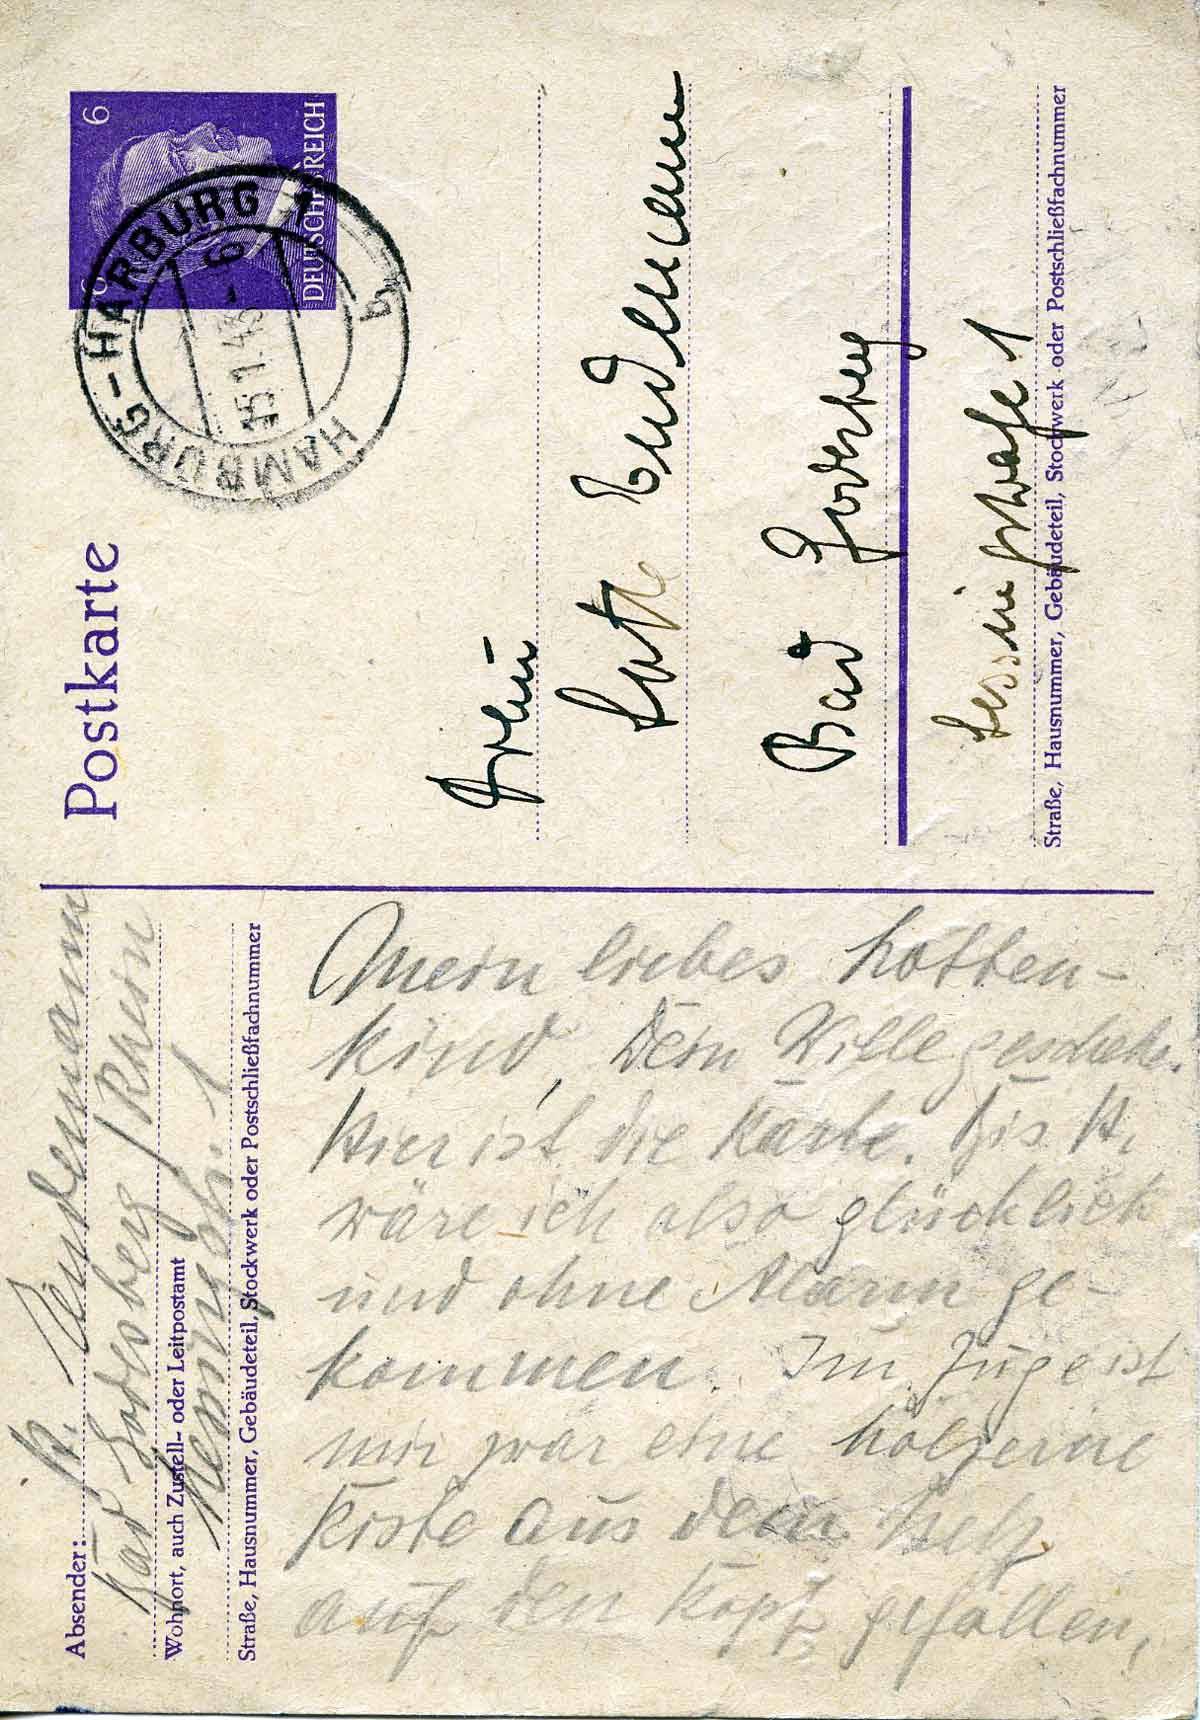 Postkarte
6 6
DEUTSCHES REICH
HAMBURG-HARBURG 1
15.1.43.- 6
b
Frau
Lotte Lindemann
Bad Godesberg
Lessingstraße 1
Straße, Hausnummer, Gebäudeteil, Stockwerk oder Postschließfachnummer
Absender: H. Lindemann
Bad Godesberg / Rhein
Wohnort, auch Zustell- oder Leitpostamt
Lessingstr. 1
Straße, Hausnummer, Gebäudeteil, Stockwerk oder Postschließfachnummer
Mein liebes Lotten-
kind, Dein Wille geschehe.
Hier ist die Karte. Bis H.
wäre ich also glücklich
und ohne Alarm ge-
kommen. Im Zuge ist
mir zwar eine hölzerne
Kiste aus dem Netz
auf den Kopf gefallen,